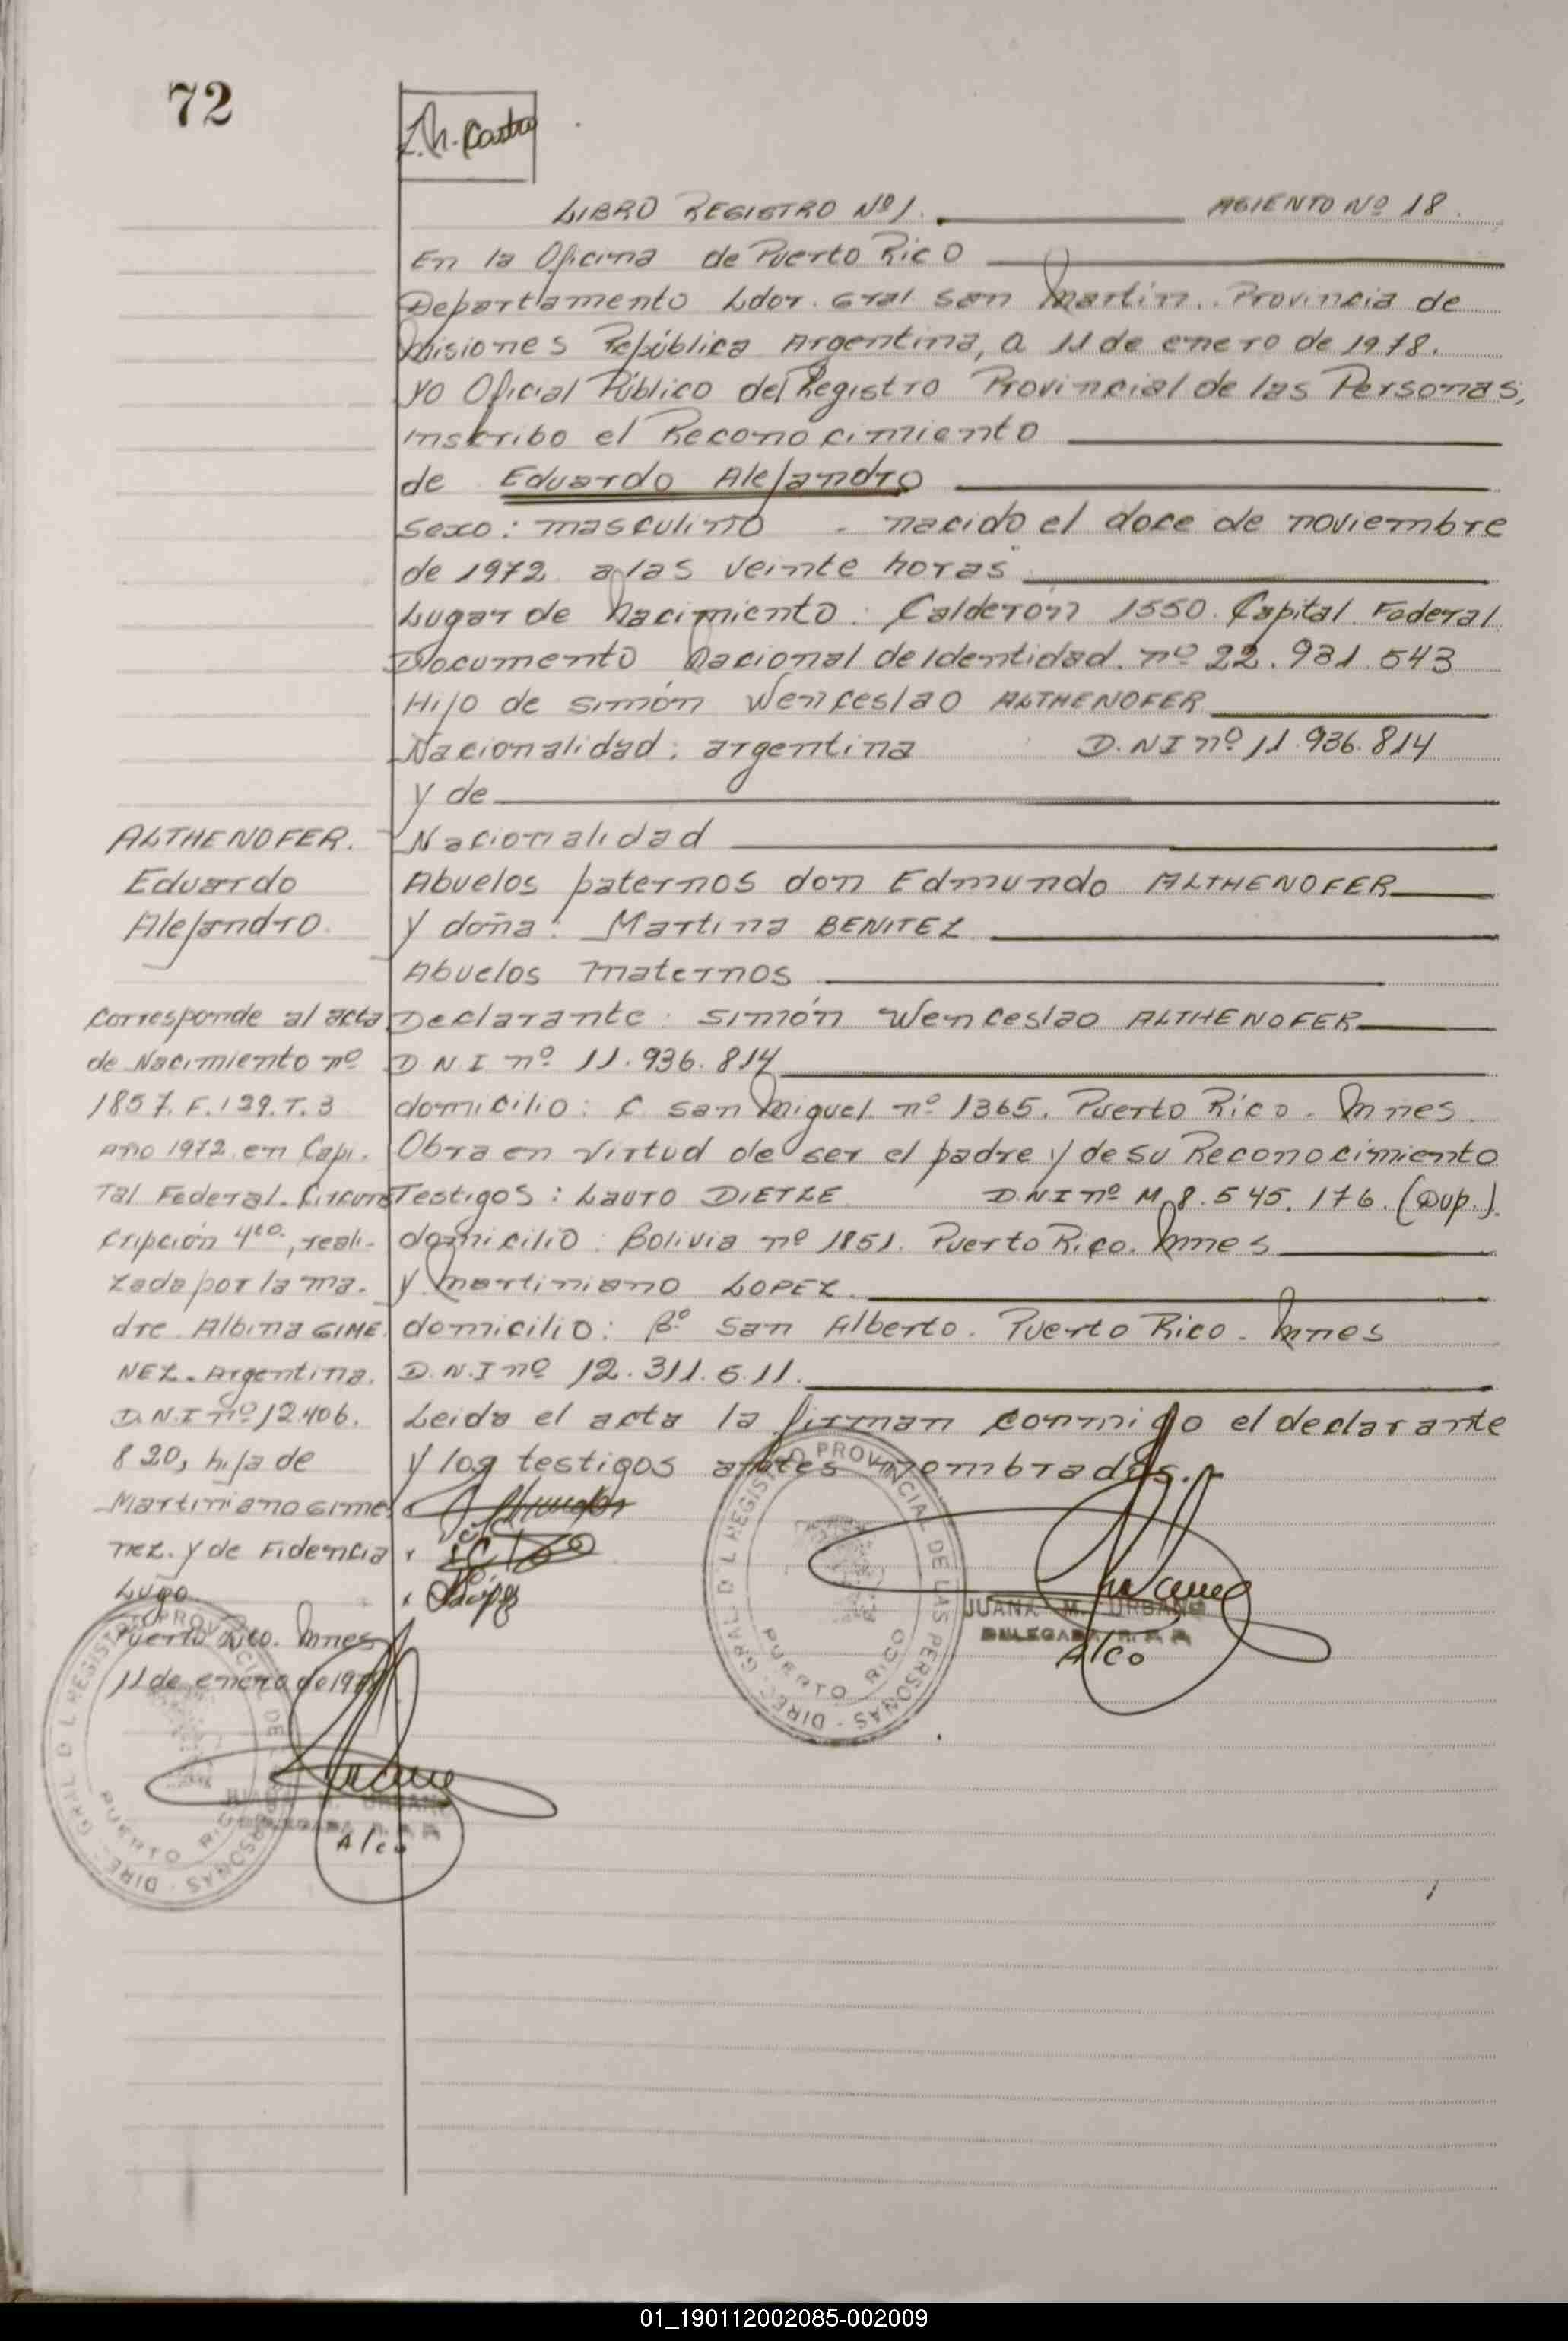 72
Castro
LIBRO REGISTRO Nº 1. ASIENTO Nº 18.
En la Oficina de Puerto Rico
Departamento Ldor. Gral San Martin. Provincia de
Misiones República Argentina, a 11 de enero de 1978.
yo Oficial Público del Registro Provincial de las Personas,
inscribo el Reconocimiento
de Eduardo Alejandro
sexo: masculino - nacido el doce de noviembre
de 1972 a las veinte horas
Lugar de Nacimiento: Calderón 1550. Capital Federal
Documento Nacional de Identidad. nº 22.931.543
Hijo de Simón Wenceslao ALTHENOFER
Nacionalidad: argentina D.N I nº 11.936.814
y de
Nacionalidad
Abuelos paternos don Edmundo ALTHENOFER
y doña: Martina BENITEZ
Abuelos maternos
Declarante: Simón Wenceslao ALTHENOFER
D N I nº 11.936.814
domicilio: C San Miguel nº 1365. Puerto Rico - Mnes.
Obra en virtud de ser el padre y de su Reconocimiento
Testigos: Lauro DIETZE D.N I nº M 8.545.176. (Dup.).
domicilio: Bolivia nº 1851. Puerto Rico. Mnes
y Martiniano LOPEZ.
domicilio: Bº San Alberto. Puerto Rico - Mnes
D.N.I nº 12.311.611.
Leida el acta la firman conmigo el declarante
y los testigos antes nombrados.
ALTHENOFER.
Eduardo
Alejandro.
Corresponde al acta
de Nacimiento nº
1857. F.129. T.3
Año 1972 en Capi-
tal Federal. Circuns
cripción 4ta., reali-
zada por la ma-
dre Albina GIME
NEZ - Argentina.
D.N.I nº 12.406.
820, hija de
Martiniano Gime
nez. y de Fidencia
Lugo.
Puerto Rico. Mnes
11 de enero de 1978
DIREC. GRAL. D L REGISTRO PROVINCIAL DE LAS PERSONAS
PUERTO RICO
JUANA M. URBANO
DELEGADA R. P. P.
Alco
DIREC. GRAL. D L REGISTRO PROVINCIAL DE LAS PERSONAS
PUERTO RICO
JUANA M. URBANO
DELEGADA R. P. P.
Alco
01_190112002085-002009